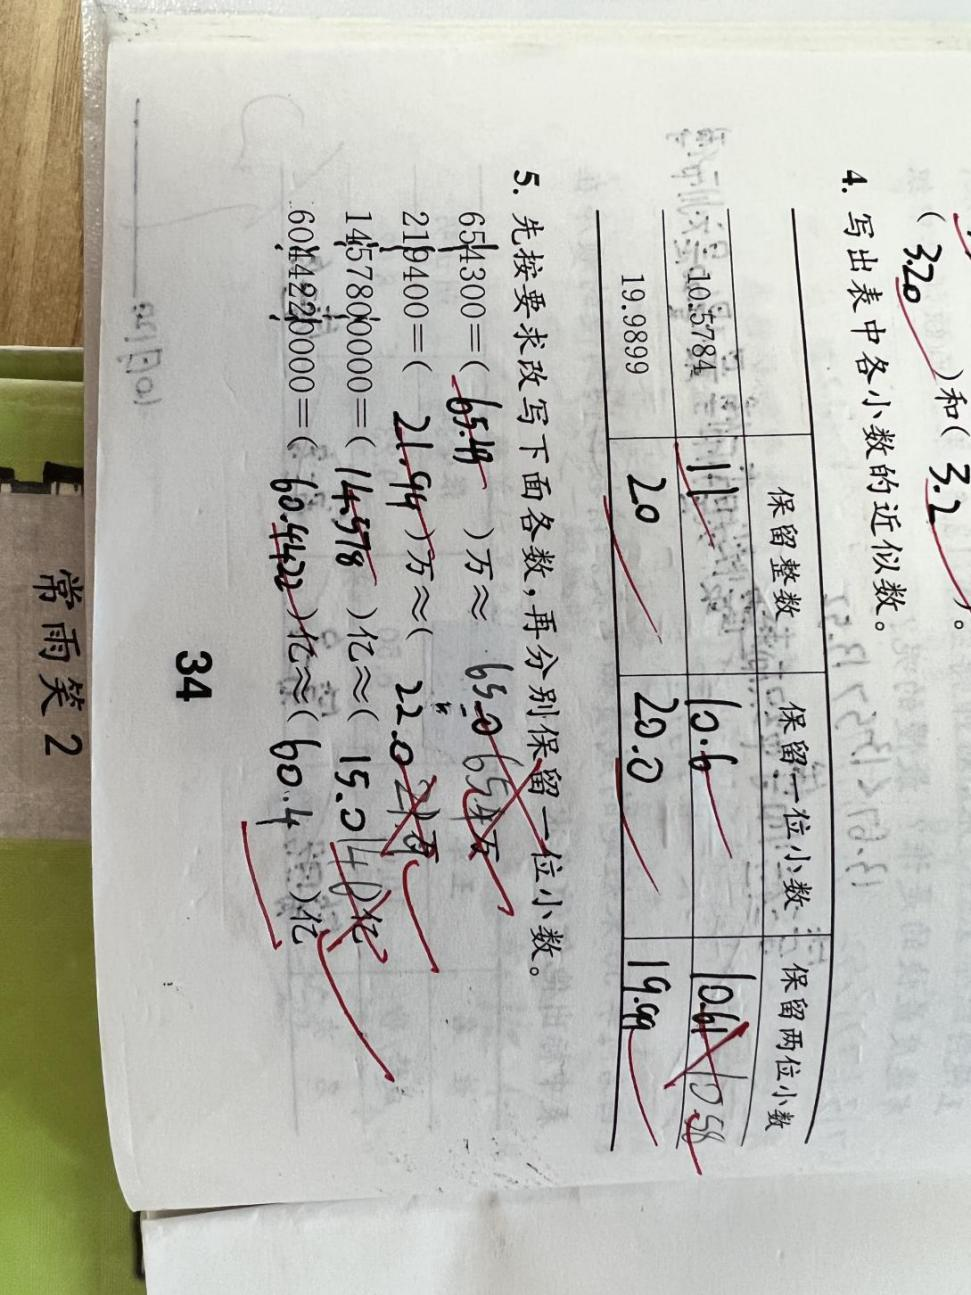 ( 3.20 )和( 3.2 )。
4. 写出表中各小数的近似数。
保留整数 保留一位小数 保留两位小数
10.5784 11 10.6 10.61 10.58
19.9899 20 20.0 19.99
5. 先按要求改写下面各数,再分别保留一位小数。
654300=( )万≈ 65.0 65.4万
219400=( 21.94 )万≈( 22.0
1457800000=( 14.578 )亿≈( 15.0 14.0亿
6044220000=( 60.4422 )亿≈( 60.4 )亿
34
常雨笑2